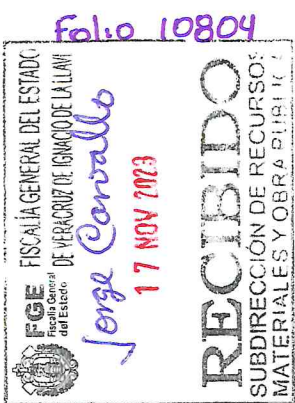 Folio 10804
FGE
Fiscalía General
del Estado
FISCALÍA GENERAL DEL ESTADO
DE VERACRUZ DE IGNACIO DE LA LLAVE
Jorge Carvallo
17 NOV 2023
RECIBIDO
SUBDIRECCIÓN DE RECURSOS
MATERIALES Y OBRA PÚBLICA